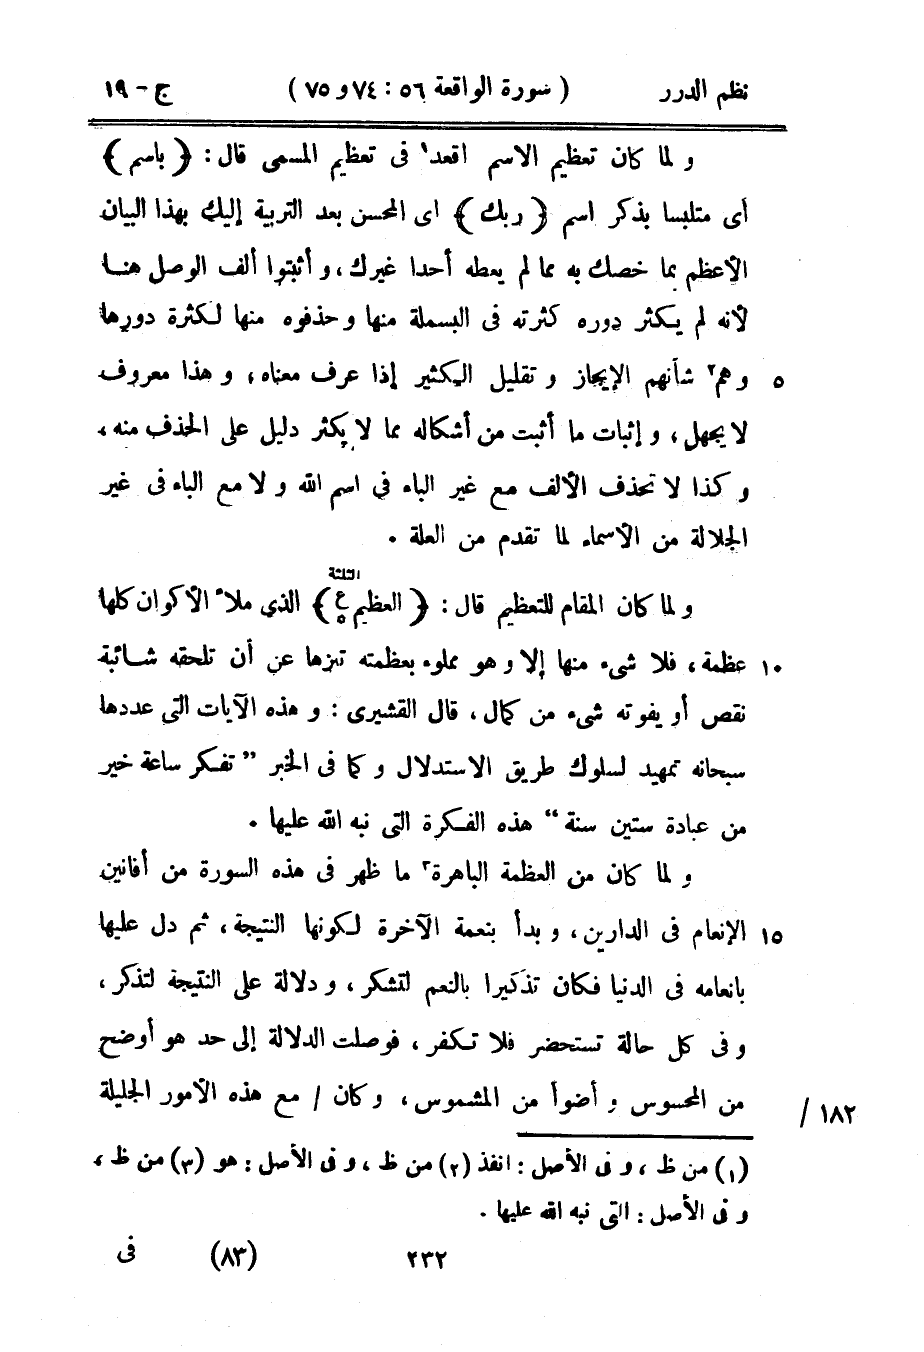 نظم الدرر ( سورة الواقعة ٥٦ : ٧٤ و ٧٥ ) ج - ١٩
و لما كان تعظيم الاسم اقعد١ فى تعظيم المسمى قال : ﴿ باسم ﴾
أى متلبسا بذكر اسم ﴿ ربك ﴾ اى المحسن بعد التربية إليك بهذا البيان
الأعظم بما خصك به مما لم يعطه أحدا غيرك ، و أثبتوا ألف الوصل هنا
لأنه لم يكثر دوره كثرته فى البسملة منها و حذفوه منها لكثرة دورها
٥ و هم٢ شأنهم الإيجاز و تقليل الكثير إذا عرف معناه ، و هذا معروف
لا يجهل ، و إثبات ما أثبت من أشكاله مما لا يكثر دليل على الحذف منه ،
و كذا لا تحذف الألف مع غير الباء في اسم الله و لا مع الباء فى غير
الجلالة من الأسماء لما تقدم من العلة .
الثلثة
و لما كان المقام للتعظيم قال : ﴿ العظيم ع٥ ﴾ الذي ملأ الأكوان كلها
١٠ عظمة ، فلا شىء منها إلا و هو مملوء بعظمته تنزها عن أن تلحقه شائبة
نقص أو يفوته شىء من كمال ، قال القشيرى : و هذه الآيات التى عددها
سبحانه تمهيد لسلوك طريق الاستدلال و كما فى الخبر " تفكر ساعة خير
من عبادة ستين سنة " هذه الفكرة التى نبه الله عليها .
و لما كان من العظمة الباهرة٣ ما ظهر فى هذه السورة من أفانين
١٥ الإنعام فى الدارين ، و بدأ بنعمة الآخرة لكونها النتيجة ، ثم دل عليها
بانعامه فى الدنيا فكان تذكيرا بالنعم لتشكر ، و دلالة على النتيجة لتذكر ،
و فى كل حالة تستحضر فلا تكفر ، فوصلت الدلالة إلى حد هو أوضح
من المحسوس و أضوأ من المشموس ، و كان / مع هذه الأمور الجليلة
١٨٢ /
(١) من ظ ، و فى الأصل : انفذ (٢) من ظ ، و فى الأصل : هو (٣) من ظ ،
و فى الأصل : التى نبه الله عليها .
٢٣٢ (٨٣) فى